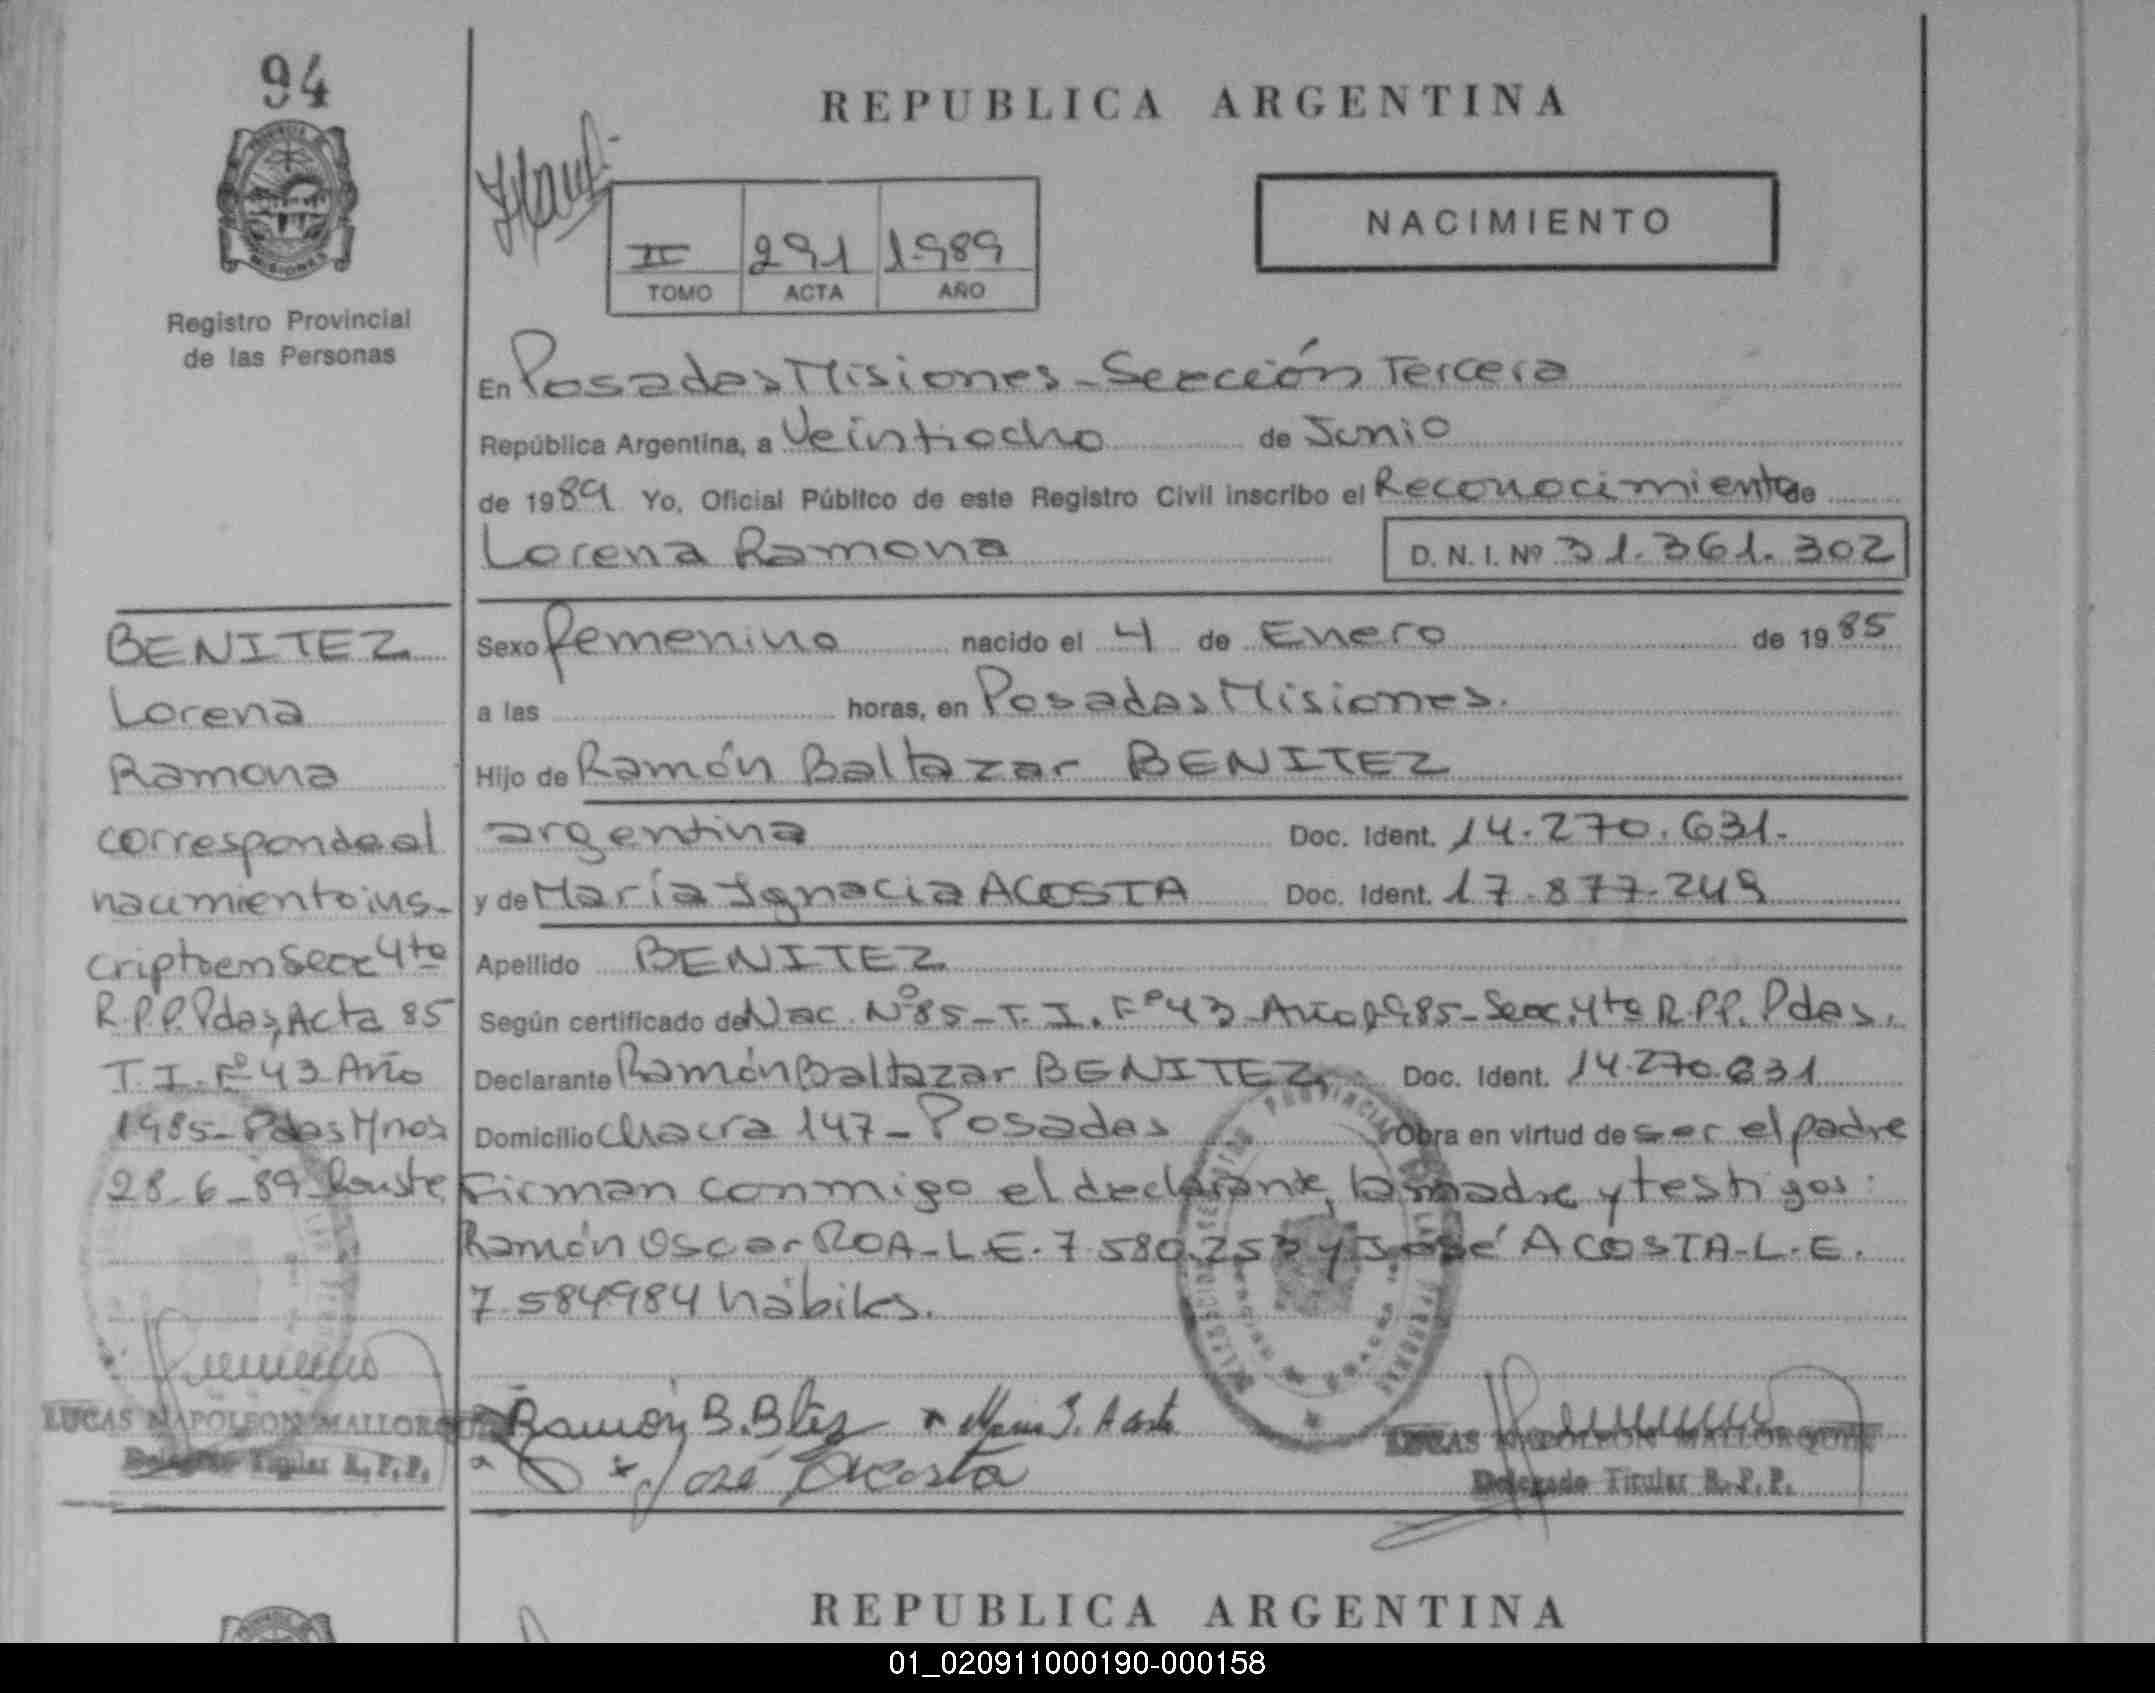 94
REPUBLICA ARGENTINA
NACIMIENTO
II 291 1989
TOMO ACTA AÑO
MISIONES
Registro Provincial
de las Personas
En Posadas Misiones - Sección Tercera
República Argentina, a Veintiocho de Junio
de 1989 Yo, Oficial Público de este Registro Civil inscribo el Reconocimiento de
Lorena Ramona D. N. I. Nº 31.361.302
Sexo femenino nacido el 4 de Enero de 1985
a las horas, en Posadas Misiones.
Hijo de Ramón Baltazar BENITEZ
argentina Doc. Ident. 14.270.631.
y de María Ignacia ACOSTA Doc. Ident. 17.877.249
Apellido BENITEZ
Según certificado de Nac. Nº 85 - T. I. Fº 43 - Año 1985 - Secc. 4ta R.P.P. Pdas.
Declarante Ramón Baltazar BENITEZ Doc. Ident. 14.270.631
Domicilio Chacra 147 - Posadas Obra en virtud de ser el padre
Firman conmigo el declarante, la madre y testigos:
Ramón Oscar ROA - L.E. 7.580.253 y José ACOSTA - L.E.
7.584984 hábiles.
BENITEZ
Lorena
Ramona
corresponde al
nacimiento ins-
cripto en Secc 4ta
R.P.P. Pdas, Acta 85
T. I. Fº 43 Año
1985 - Pdas Mnes
28-6-89
LUCAS NAPOLEON MALLORQUIN
Delegado Titular R. P. P.
Ramón B. Btez Maria I. Acosta
José Acosta
LUCAS NAPOLEON MALLORQUIN
Delegado Titular R. P. P.
REPUBLICA ARGENTINA
01_020911000190-000158